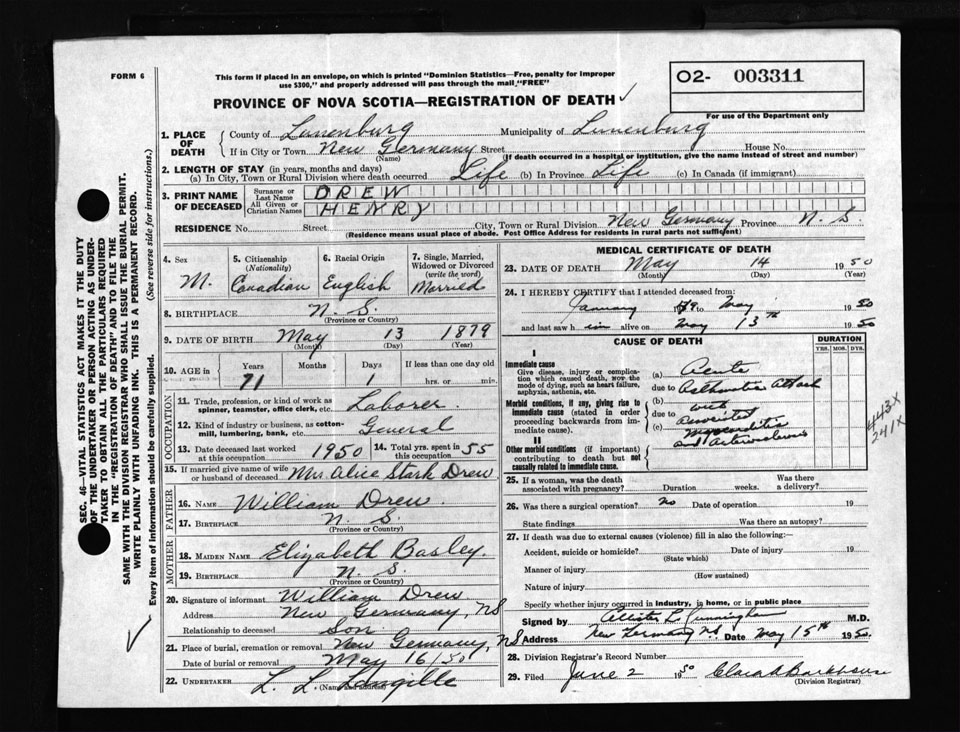 FORM 6
This form if placed in an envelope, on which is printed "Dominion Statistics—Free, penalty for improper
use $300," and properly addressed will pass through the mail "FREE"
PROVINCE OF NOVA SCOTIA—REGISTRATION OF DEATH ✓
02- 003311
For use of the Department only
1. PLACE OF DEATH
County of Lunenburg Municipality of Lunenburg
If in City or Town New Germany Street House No.
(Name) (If death occurred in a hospital or institution, give the name instead of street and number)
2. LENGTH OF STAY (in years, months and days)
(a) In City, Town or Rural Division where death occurred Life (b) In Province Life (c) In Canada (if immigrant)
3. PRINT NAME OF DECEASED
Surname or Last Name DREW
All Given or Christian Names HENRY
RESIDENCE No. Street City, Town or Rural Division New Germany Province N. S.
(Residence means usual place of abode. Post Office Address for residents in rural parts not sufficient)
4. Sex
M.
5. Citizenship
(Nationality)
Canadian
6. Racial Origin
English
7. Single, Married,
Widowed or Divorced
(write the word)
Married
8. BIRTHPLACE N. S.
(Province or Country)
9. DATE OF BIRTH May 13 1879
(Month) (Day) (Year)
10. AGE in Years Months Days If less than one day old
71 1 hrs. or min.
OCCUPATION
11. Trade, profession, or kind of work as
spinner, teamster, office clerk, etc. Laborer
12. Kind of industry or business, as cotton-
mill, lumbering, bank, etc. General
13. Date deceased last worked
at this occupation 1950
14. Total yrs. spent in
this occupation 55
15. If married give name of wife
or husband of deceased Mrs. Alice Stark Drew
FATHER
16. NAME William Drew
17. BIRTHPLACE N. S.
(Province or Country)
MOTHER
18. MAIDEN NAME Elizabeth Basley.
19. BIRTHPLACE N. S.
(Province or Country)
20. Signature of informant William Drew
Address New Germany, NS
Relationship to deceased Son
21. Place of burial, cremation or removal New Germany, NS
Date of burial or removal May 16/50
22. UNDERTAKER L. L. Langille
(Name and address)
MEDICAL CERTIFICATE OF DEATH
23. DATE OF DEATH May 14 1950
(Month) (Day) (Year)
24. I HEREBY CERTIFY that I attended deceased from:
January to May 1950
and last saw him alive on May 13th 1950
CAUSE OF DEATH
DURATION
YRS. MOS. DYS.
I
Immediate cause
Give disease, injury or complica-
tion which caused death, not the
mode of dying, such as heart failure,
asphyxia, asthenia, etc.
(a) Acute
due to Asthmatic Attack
Morbid conditions, if any, giving rise to
immediate cause (stated in order
proceeding backwards from im-
mediate cause).
(b) with
due to Associated
(c) Myocarditis
and Arteriosclerosis
II
Other morbid conditions (if important)
contributing to death but not
causally related to immediate cause.
443X
241X
25. If a woman, was the death
associated with pregnancy? Duration weeks. Was there
a delivery?
26. Was there a surgical operation? no Date of operation 19
State findings Was there an autopsy?
27. If death was due to external causes (violence) fill in also the following:—
Accident, suicide or homicide? Date of injury 19
(State which)
Manner of injury
(How sustained)
Nature of injury
Specify whether injury occurred in industry, is home, or in public place
Signed by L Cunningham M.D.
Address New Germany NS Date May 15th 1950.
28. Division Registrar's Record Number
29. Filed June 2 1950
(Division Registrar)
SEC. 46—VITAL STATISTICS ACT MAKES IT THE DUTY
OF THE UNDERTAKER OR PERSON ACTING AS UNDER-
TAKER TO OBTAIN ALL THE PARTICULARS REQUIRED
IN THE "REGISTRATION OF DEATH" AND TO FILE THE
SAME WITH THE DIVISION REGISTRAR WHO SHALL ISSUE THE BURIAL PERMIT.
WRITE PLAINLY WITH UNFADING INK. THIS IS A PERMANENT RECORD.
Every item of information should be carefully supplied. (See reverse side for instructions.)